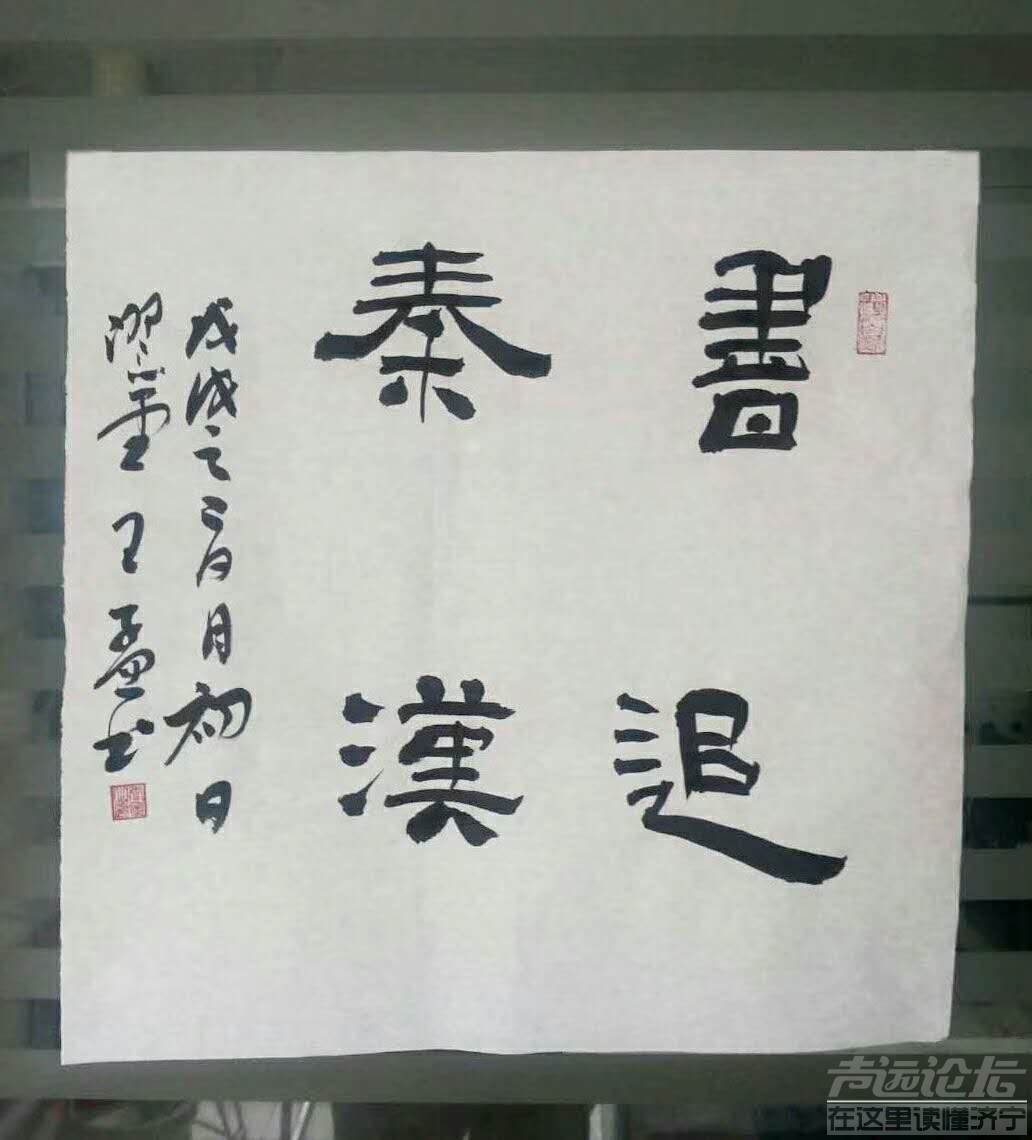 書追
秦漢
戊戌之二月初日
墨王孟书
声远论坛
在这里读懂济宁